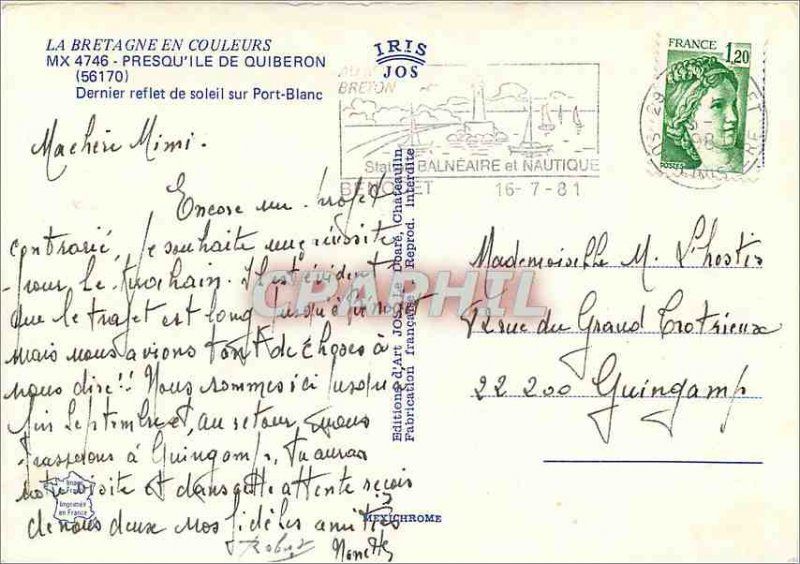 LA BRETAGNE EN COULEURS
MX 4746 - PRESQU'ILE DE QUIBERON
(56170)
Dernier reflet de soleil sur Port-Blanc
IRIS
JOS
BRETON
Stat BALNÉAIRE et NAUTIQUE
BENODET 16-7-81
FRANCE 1,20
POSTES
Ma chère Mimi.
Encore un projet
contrarié, je souhaite une réussite
pour le prochain. Il est évident
que le trajet est long jusqu'à Bénodet
mais nous avions tant de choses à
nous dire!! Nous sommes ici jusqu'à
fin Septembre et, au retour, si nous
passons à Guingamp, tu auras
notre visite et dans cette attente reçois
de nous deux nos fidèles amitiés
Robert
Nanette
Editions d'Art JOS Le Doaré, Chateaulin
Fabrication française Reprod. Interdite
MEXICHROME
Imprimé
en France
CPAPHIL
Mademoiselle M. L'hostis
rue du Grand Trotrieux
22 200 Guingamp